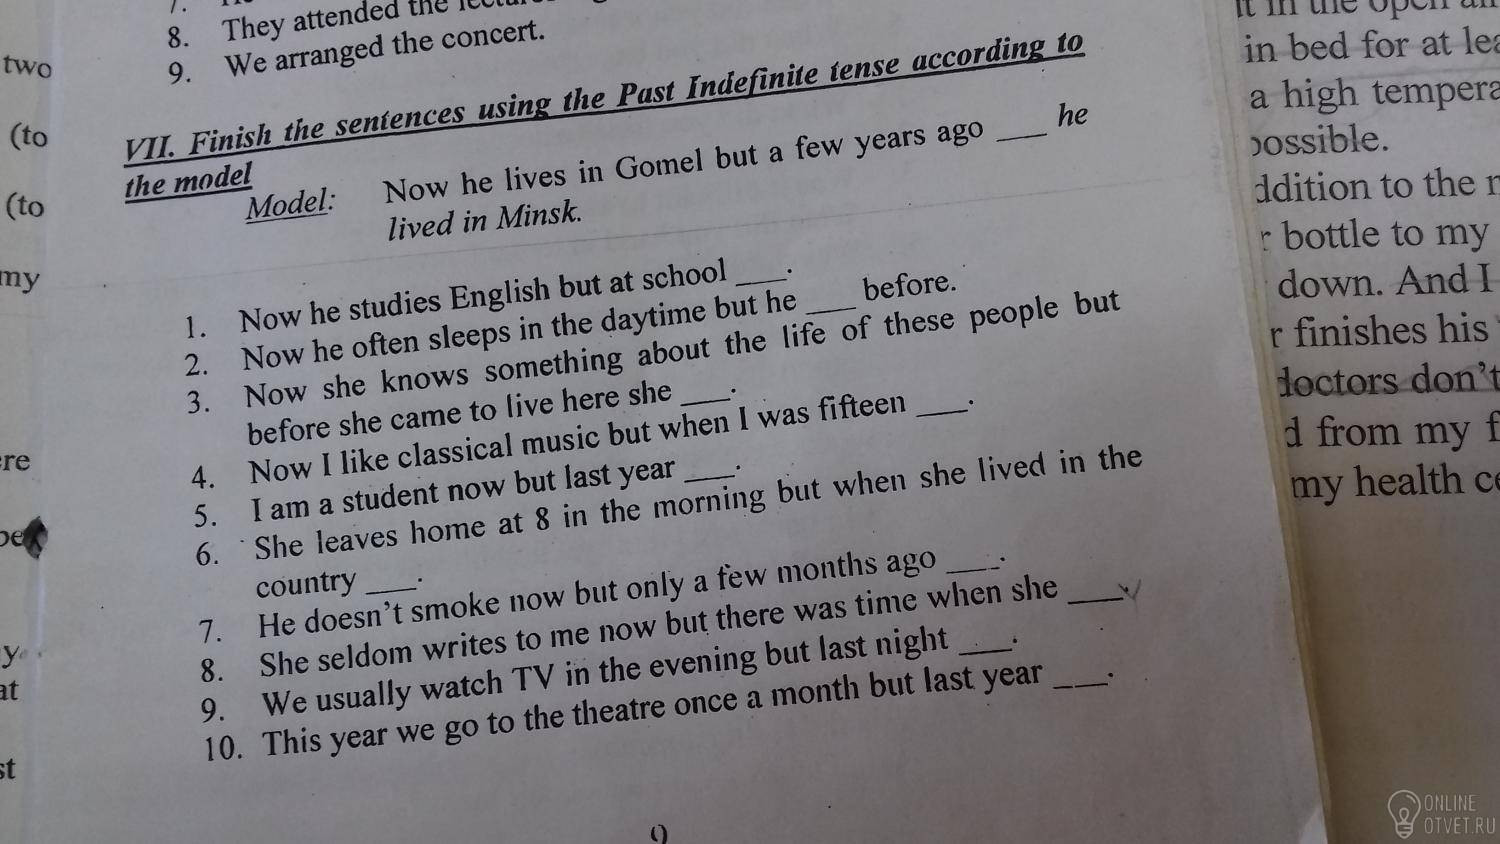 8. They attended the
9. We arranged the concert.
VII. Finish the sentences using the Past Indefinite tense according to
the model
Model: Now he lives in Gomel but a few years ago ___ he
lived in Minsk.
1. Now he studies English but at school ___.
2. Now he often sleeps in the daytime but he ___ before.
3. Now she knows something about the life of these people but
before she came to live here she ___.
4. Now I like classical music but when I was fifteen ___.
5. I am a student now but last year ___.
6. She leaves home at 8 in the morning but when she lived in the
country ___.
7. He doesn't smoke now but only a few months ago ___.
8. She seldom writes to me now but there was time when she ___
9. We usually watch TV in the evening but last night ___.
10. This year we go to the theatre once a month but last year ___.
two
(to
(to
my
st
it in the open
in bed for at
a high
possible.
addition to the
bottle to my
down. And I
finishes his
doctors don't
from my
my health
ONLINE
OTVET.RU